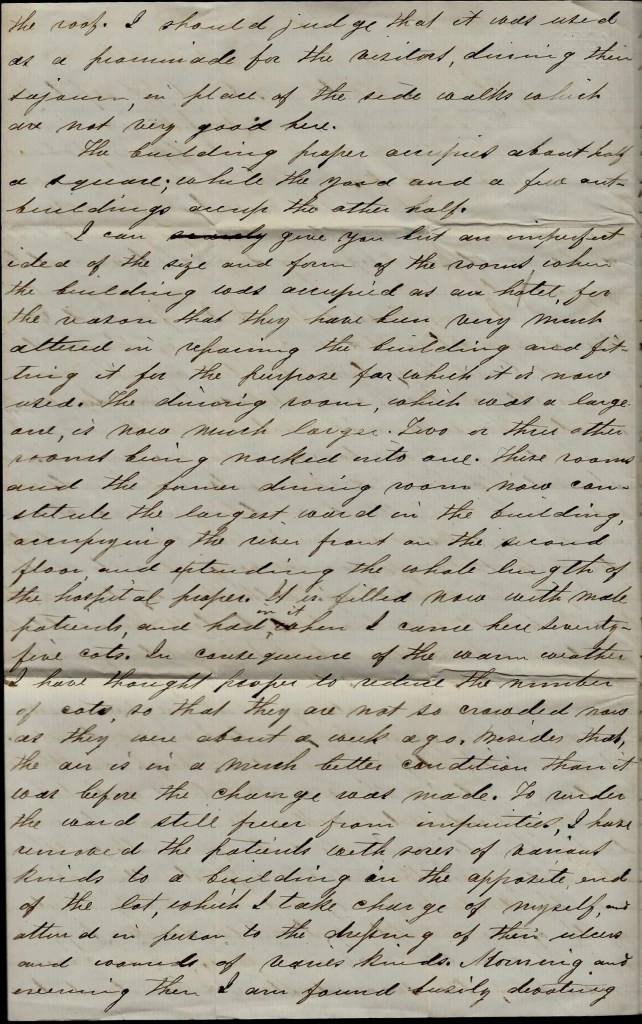 the roof. I should judge that it was used
as a prominade for the visitors, during their
sojourn, in place of the side walks which
are not very good here.
The building proper occupies about half
a square; while the yard and a few out-
buildings occup the other half.
I can scarcely give you but an imperfect
idea of the size and form of the rooms when
the building was occupied as an hotel, for
the reason that they have been very much
altered in repairing the building and fit-
ting it for the purpose for which it is now
used. The dinning room, which was a large
one, is now much larger. Two or three other
rooms being nocked into one. These rooms
and the former dinning room now con-
stitute the largest ward in the building,
occupying the river front on the second
floor, and extending the whole length of
the hospital proper. It is filled now with male
patients, and had in it when I came here seventy-
five cots. In consequence of the warm weather
I have thought proper to reduce the number
of cots, so that they are not so crowded now
as they were about a week ago. Besides that,
the air is in a much better condition than it
was before the change was made. To render
the ward still freer from impurities, I have
removed the patients with sores of various
kinds to a building on the opposite end
of the lot, which I take charge of myself, and
attend in person to the dressing of their ulcers
and wounds of varies kinds. Morning and
evening then I am found busily devoting